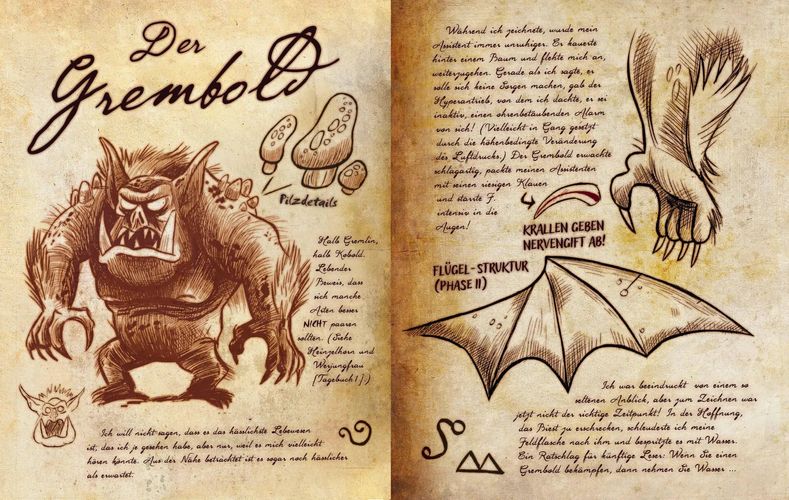 Der
Grembold
Pilzdetails
Halb Gremlin,
halb Kobold.
Lebender
Beweis, dass
sich manche
Arten besser
NICHT paaren
sollten. (Siehe
Heinzelhorn und
Werjungfrau
[Tagebuch 1].)
Ich will nicht sagen, dass es das hässlichste Lebewesen
ist, das ich je gesehen habe, aber nur, weil es mich vielleicht
hören könnte. Aus der Nähe betrachtet ist es sogar noch hässlicher
als erwartet.
Während ich zeichnete, wurde mein
Assistent immer unruhiger. Er kauerte
hinter einem Baum und flehte mich an,
weiterzugehen. Gerade als ich sagte, er
solle sich keine Sorgen machen, gab der
Hyperantrieb, von dem ich dachte, er sei
inaktiv, einen ohrenbetäubenden Alarm
von sich! (Vielleicht in Gang gesetzt
durch die höhenbedingte Veränderung
des Luftdrucks.) Der Grembold erwachte
schlagartig, packte meinen Assistenten
mit seinen riesigen Klauen
und starrte F.
intensiv in die
Augen!
KRALLEN GEBEN
NERVENGIFT AB!
FLÜGEL-STRUKTUR
(PHASE II)
Ich war beeindruckt von einem so
seltenen Anblick, aber zum Zeichnen war
jetzt nicht der richtige Zeitpunkt! In der Hoffnung,
das Biest zu erschrecken, schleuderte ich meine
Feldflasche nach ihm und bespritzte es mit Wasser.
Ein Ratschlag für künftige Leser: Wenn Sie einen
Grembold bekämpfen, dann nehmen Sie Wasser ...